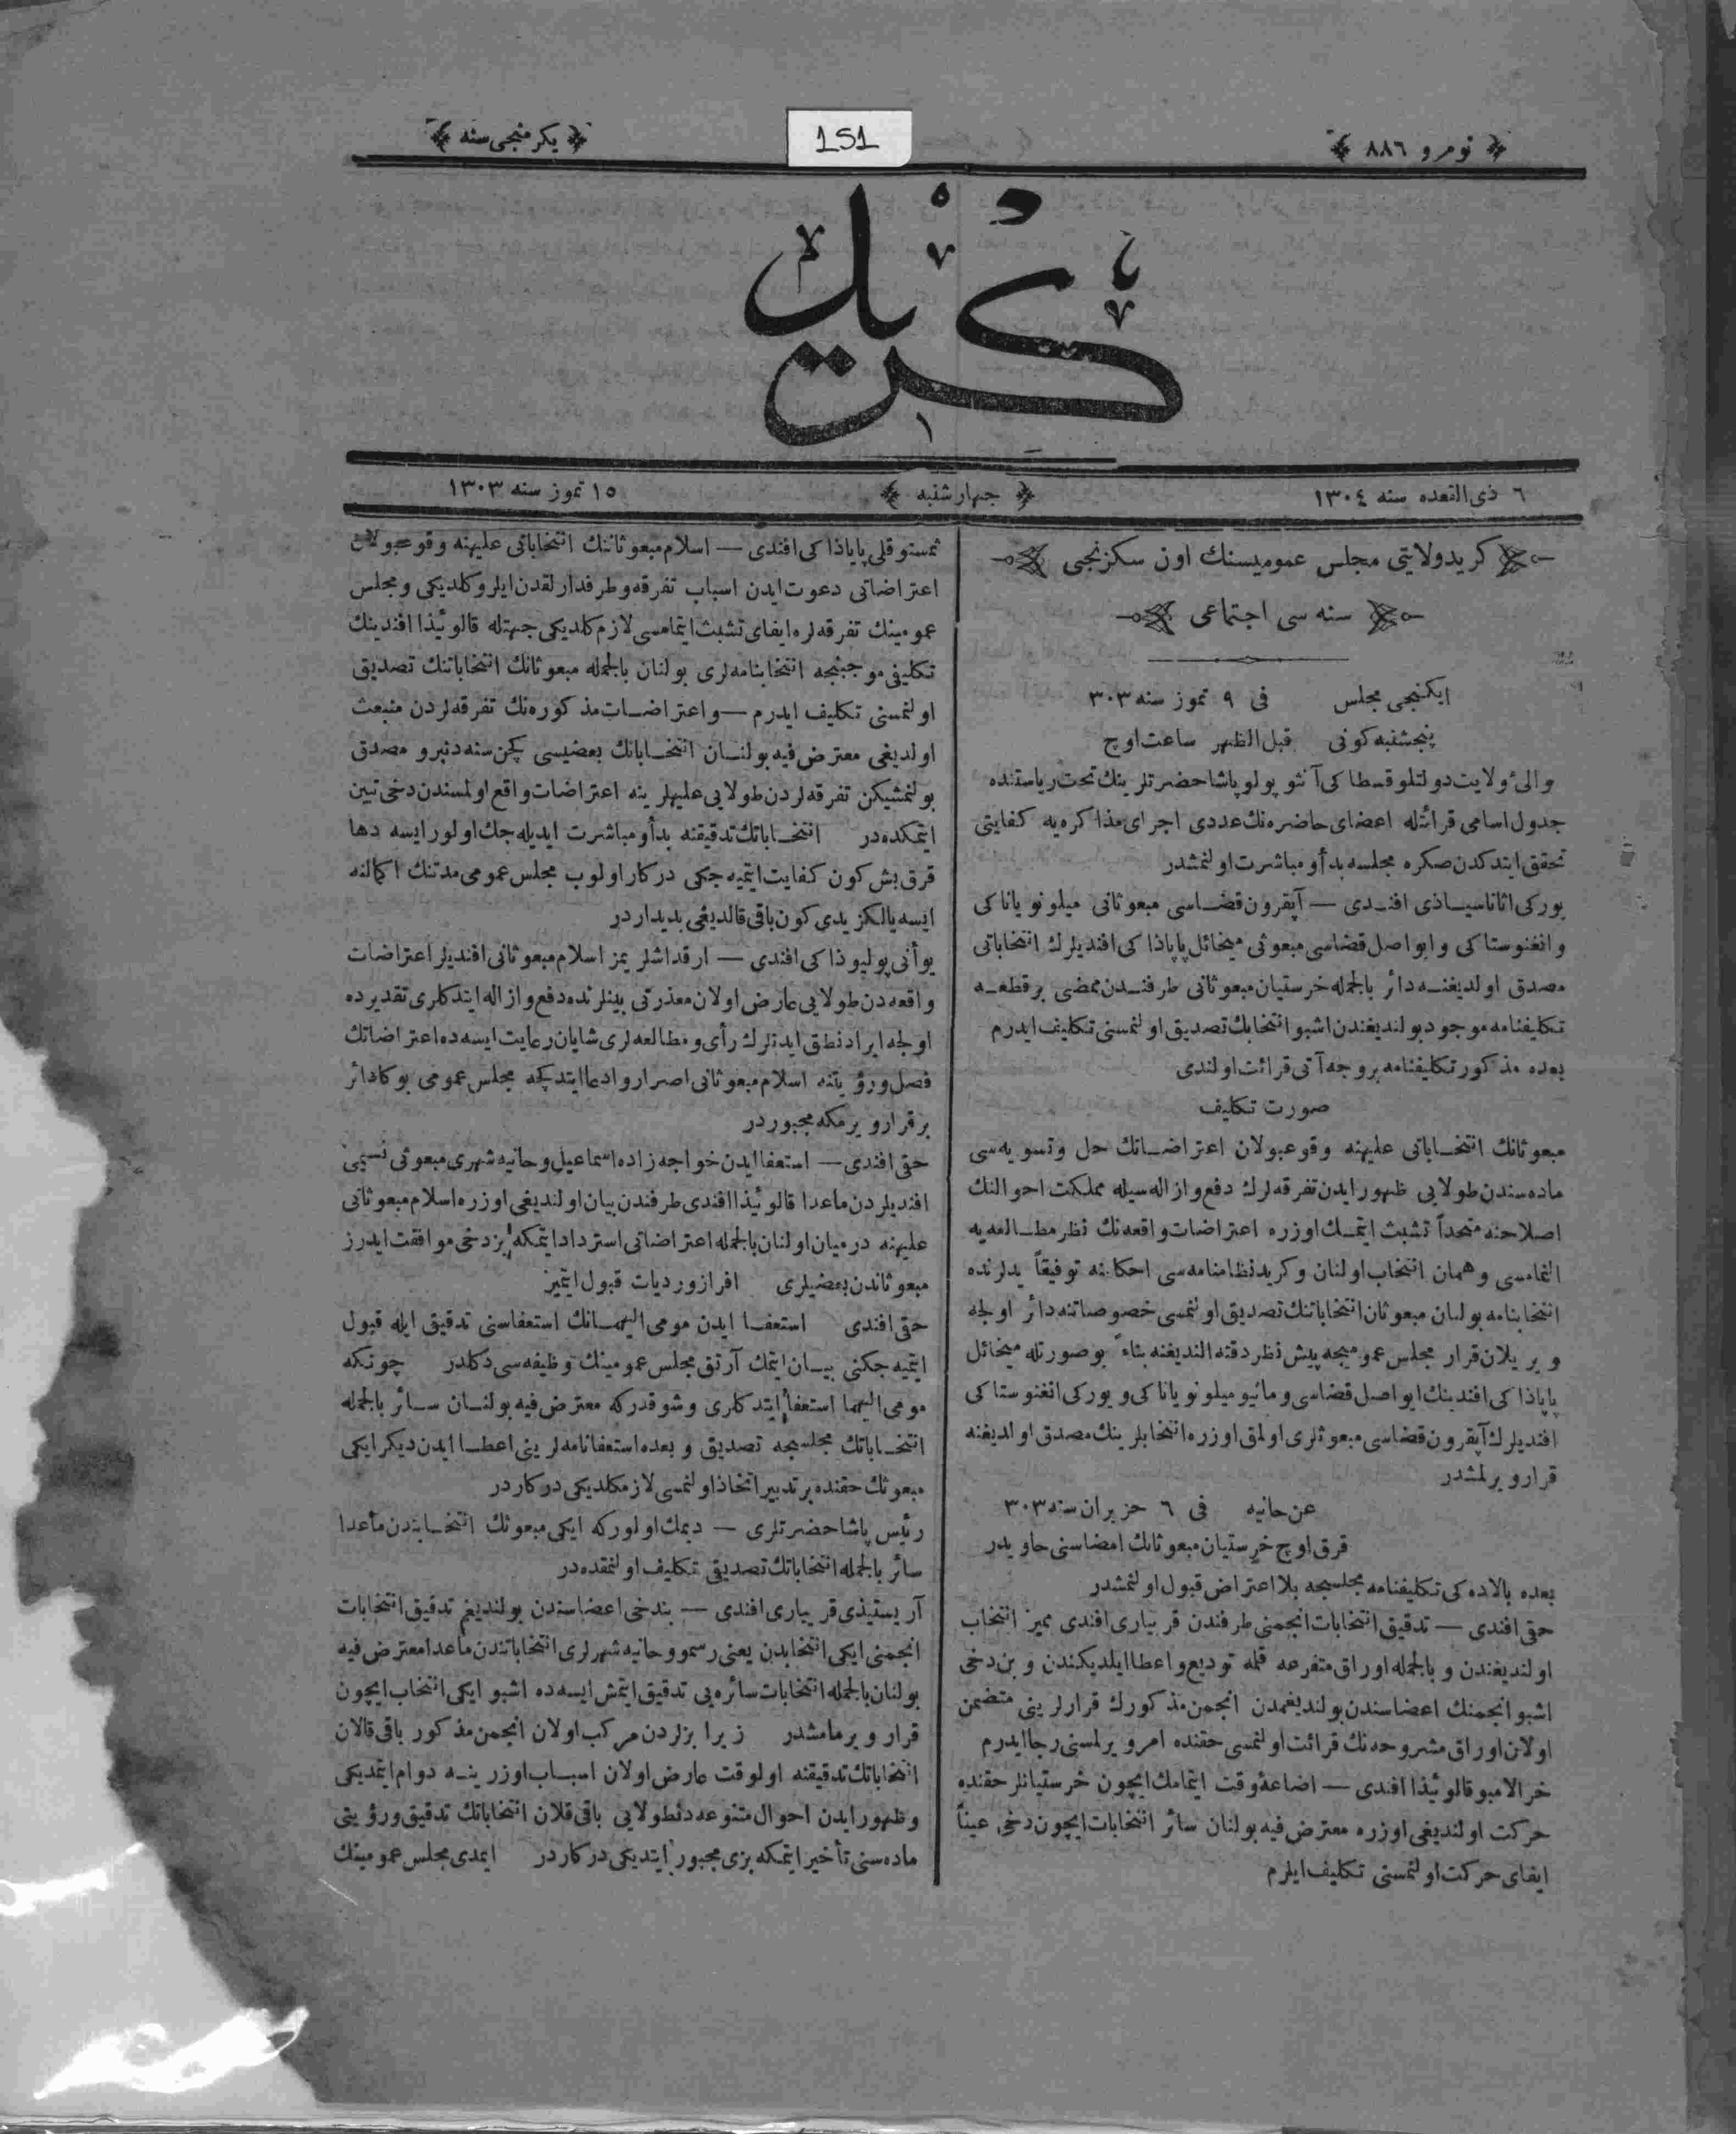 نومرو ٨٨٦
151
يكرمنجى سنه
كريد
٦ ذى القعده سنه ١٣٠٤
چهارشنبه
١٥ تموز سنه ١٣٠٣
كريد ولايتى مجلس عموميسنك اون سكزنجى
سنه سى اجتماعى
ايكنجى مجلس فى ٩ تموز سنه ٣٠٣
پنجشنبه كونى قبل الظهر ساعت اوچ
والئ ولايت دولتلو قسطاكى آنثوپولو پاشا حضرتلرينك تحت رياستنده
جدول اسامى قرائتله اعضاى حاضره نك عددى اجراى مذاكره يه كفايتى
تحقق ايتدكدن صكره مجلسه بدأ و مباشرت اولنمشدر
يوركى اثاناسياذى افندى — آپقرون قضاسى مبعوثانى ميلونو ياناكى
و انغنوستاكى و ايواصل قضاسى مبعوثى ميخائل پاپاذاكى افنديلرك انتخاباتى
مصدق اولديغنه دائر بالجمله خرستيان مبعوثانى طرفندن ممضى برقطعه
تكليفنامه موجود بولنديغندن اشبو انتخابك تصديق اولنمسنى تكليف ايدرم
بعده مذكور تكليفنامه بروجه آتى قرائت اولندى
صورت تكليف
مبعوثانك انتخاباتى عليهنه وقوعبولان اعتراضاتك حل وتسويه سى
ماده سندن طولايى ظهور ايدن تفرقه لرك دفع و ازاله سيله مملكت احوالنك
اصلاحنه متحداً تشبث ايتمك اوزره اعتراضات واقعه نك نظر مطالعه يه
النمامسى و همان انتخاب اولنان و كريد نظامنامه سى احكامنه توفيقاً يدلرنده
انتخابنامه بولنان مبعوثان انتخاباتنك تصديق اولنمسى خصوصاتنه دائر اولجه
و يريلان قرار مجلس عموميجه پيش نظر دقته النديغنه بناءً بوصورتله ميخائل
پاپاذاكى افندينك ايواصل قضاسى و مانيو ميلونو ياناكى و يوركى انغنوستاكى
افنديلرك آپقرون قضاسى مبعوثلرى اولمق اوزره انتخابلرينك مصدق اولديغنه
قرار ويرلمشدر
عن حانيه فى ٦ حزيران سنه ٣٠٣
قرق اوچ خرستيان مبعوثانك امضاسنى حاويدر
بعده بالاده كى تكليفنامه مجلسجه بلا اعتراض قبول اولنمشدر
حقى افندى — تدقيق انتخابات انجمنى طرفندن قربيارى افندى مميز انتخاب
اولنديغندن و بالجمله اوراق متفرعه قلمه توديع و اعطا ايلديكندن و بن دخى
اشبو انجمنك اعضاسندن بولنديغمدن انجمن مذكورك قرارلرينى متضمن
اولان اوراق مشروحه نك قرائت اولنمسى حقنده امر ويرلمسنى رجا ايدرم
خرالامبو قالوئيذا افندى — اضاعهٔ وقت ايتمامك ايچون خرستيانلر حقنده
حركت اولنديغى اوزره معترض فيه بولنان سائر انتخابات ايچون دخى عيناً
ايفاى حركت اولنمسنى تكليف ايلرم
ثمستوقلى پاپاذاكى افندى — اسلام مبعوثاننك انتخاباتى عليهنه وقوعبولان
اعتراضاتى دعوت ايدن اسباب تفرقه و طرفدارلقدن ايلرو كلديكى و مجلس
عمومينك تفرقه لره ايفاى تشبث ايتمامسى لازم كلديكى جهتله قالوئيذا افندينك
تكليفى موجبنجه انتخابنامه لرى بولنان بالجمله مبعوثانك انتخاباتنك تصديق
اولنمسنى تكليف ايدرم — و اعتراضات مذكوره نك تفرقه لردن منبعث
اولديغى معترض فيه بولنان انتخاباتك بعضيسى كچن سنه دنبرو مصدق
بولنمشيكن تفرقه لردن طولايى عليهلرينه اعتراضات واقع اولمسندن دخى تبين
ايتمكده در انتخاباتك تدقيقنه بدأ و مباشرت ايديله جك اولور ايسه دها
قرق بش كون كفايت ايتميه جكى دركار اولوب مجلس عمومى مدتنك اكمالنه
ايسه يالكز يدى كون باقى قالديغى بديدار در
يوأنى پوليوذاكى افندى — ارقداشلريمز اسلام مبعوثانى افنديلر اعتراضات
واقعه دن طولايى عارض اولان معذرتى بينلرنده دفع و ازاله ايتدكلرى تقديرده
اولجه ايراد نطق ايدنلرك رأى و مطالعه لرى شايان رعايت ايسه ده اعتراضاتك
فصل و رؤيتنه اسلام مبعوثانى اصرار و ادعا ايتدكجه مجلس عمومى بوكا دائر
برقرار ويرمكه مجبوردر
حقى افندى — استعفا ايدن خواجه زاده اسماعيل و حانيه شهرى مبعوثى نسيمى
افنديلردن ماعدا قالوئيذا افندى طرفندن بيان اولنديغى اوزره اسلام مبعوثانى
عليهنه درميان اولنان بالجمله اعتراضاتى استرداد ايتمكه بز دخى موافقت ايدرز
مبعوثاندن بعضيلرى افراز ورديات قبول ايتميز
حقى افندى استعفا ايدن مومى اليهمانك استعفاسنى تدقيق ايله قبول
ايتميه جكنى بيان ايتمك آرتق مجلس عمومينك وظيفه سى دكلدر چونكه
مومى اليهما استعفا ايتدكلرى و شو قدركه معترض فيه بولنان سائر بالجمله
انتخاباتك مجلسجه تصديق و بعده استعفانامه لرينى اعطا ايدن ديكر ايكى
مبعوثك حقنده برتدبير اتخاذ اولنمسى لازمكلديكى دركاردر
رئيس پاشا حضرتلرى — ديمك اولوركه ايكى مبعوثك انتخابندن ماعدا
سائر بالجمله انتخاباتك تصديقى تكليف اولنمقده در
آريستيذى قربيارى افندى — بندخى اعضاسندن بولنديغم تدقيق انتخابات
انجمنى ايكى انتخابدن يعنى رسمو و حانيه شهرلرى انتخاباتندن ماعدا معترض فيه
بولنان بالجمله انتخابات سائره يى تدقيق ايتمش ايسه ده اشبو ايكى انتخاب ايچون
قرار ويرمامشدر زيرا بزلردن مركب اولان انجمن مذكور باقى قالان
انتخاباتك تدقيقنه اولوقت عارض اولان اسباب اوزرينه دوام ايتمديكى
و ظهور ايدن احوال متنوعه دن طولايى باقى قلان انتخاباتك تدقيق و رؤيتى
ماده سنى تأخير ايتمكه بزى مجبور ايتديكى دركاردر ايمدى مجلس عمومينك